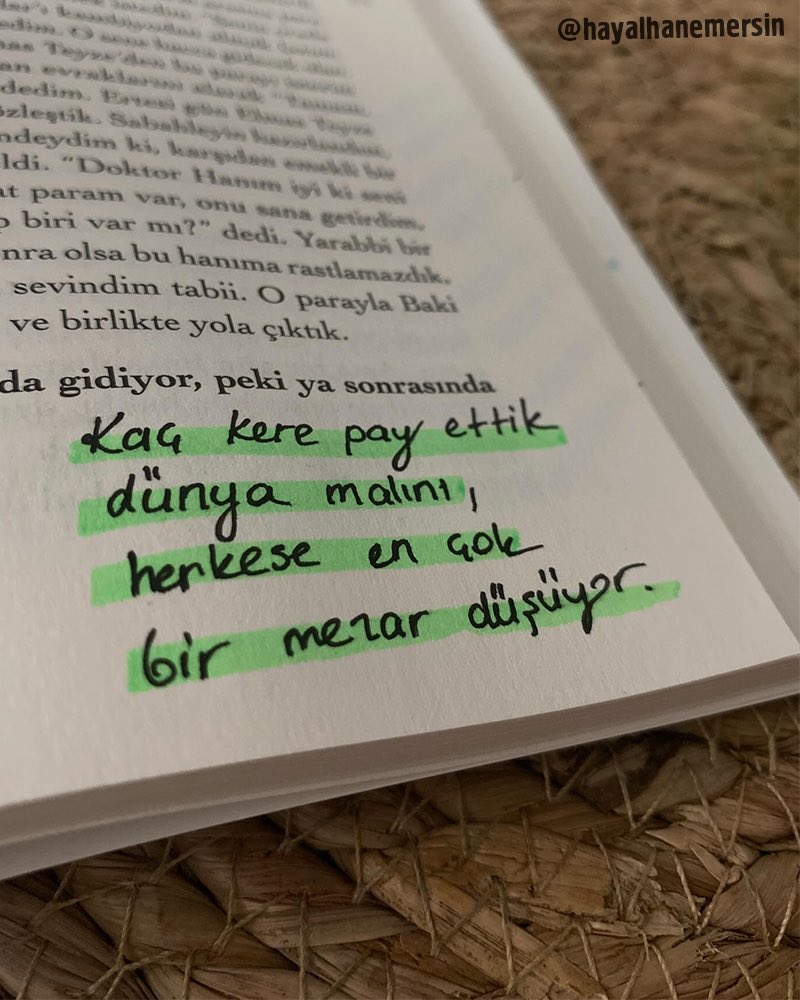 @hayalhanemersin
an evraklarını alarak "Tamam,
dedim. Ertesi gün Elmas Teyze
özleştik. Sabahleyin hazırlandım,
ndeydim ki, karşıdan emekli bir
ldi. "Doktor Hanım iyi ki seni
at param var, onu sana getirdim,
p biri var mı?" dedi. Yarabbi bir
nra olsa bu hanıma rastlamazdık.
sevindim tabii. O parayla Baki
ve birlikte yola çıktık.
da gidiyor, peki ya sonrasında
Kaç kere pay ettik
dünya malını,
herkese en çok
bir mezar düşüyor.